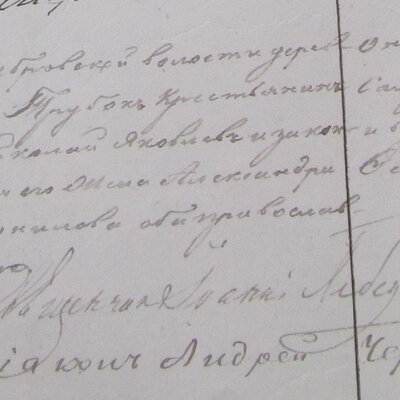 бровской волости дерев
Трубокъ крестьянинъ
николай Яковлевъ и закон-
я его жена Александра
онилова оба православ-
Священникъ Іоаннъ Лебед
іаконъ Андрей Чер